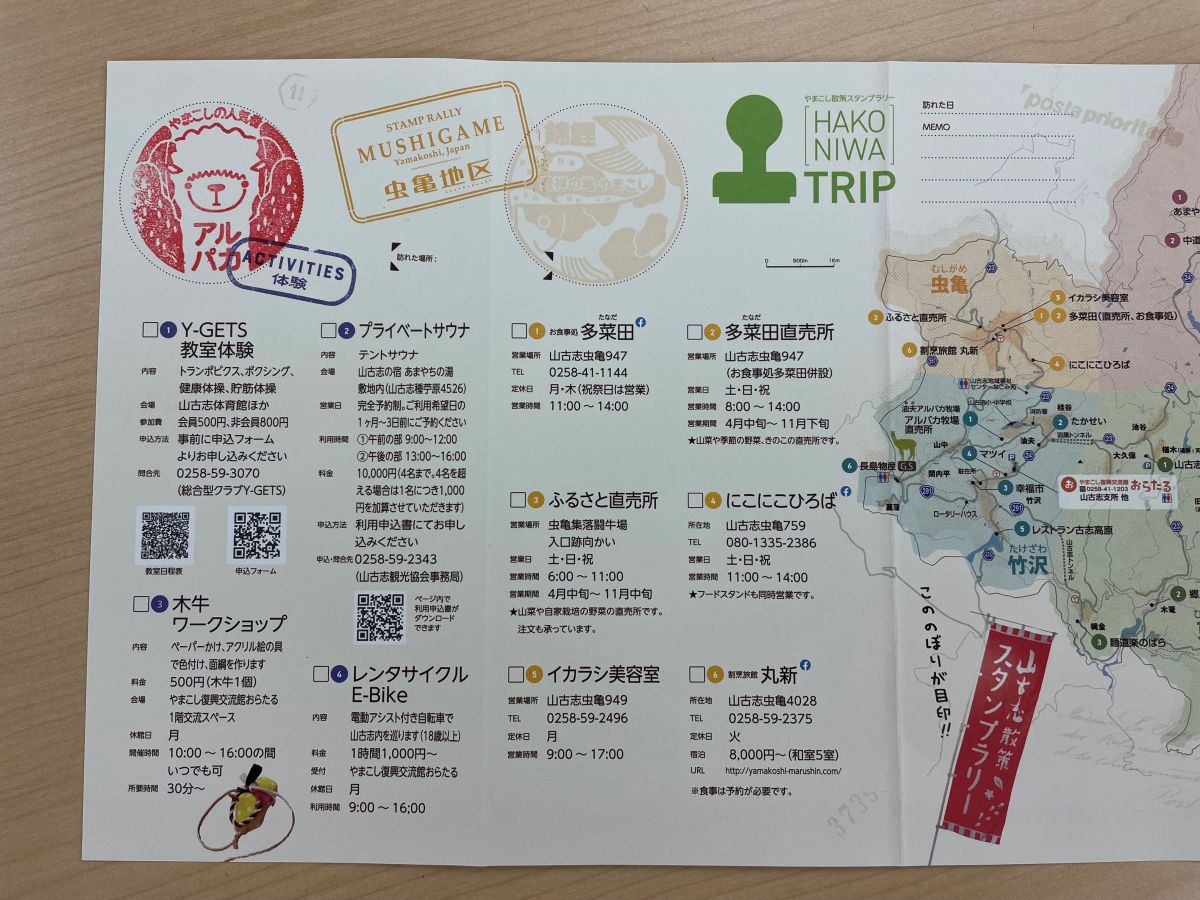 やまこしの人気者
アル
パカ
11
STAMP RALLY
MUSHIGAME
Yamakoshi, Japan
虫亀地区
ACTIVITIES
体験
錦鯉
発祥の地 やまこし
訪れた場所：
やまこし散策スタンプラリー
HAKO
NIWA
TRIP
0 500m 1Km
訪れた日
MEMO
postaprioritaria
□1 Y-GETS
教室体験
内容 トランポビクス、ボクシング、
健康体操、貯筋体操
会場 山古志体育館ほか
参加費 会員500円、非会員800円
申込方法 事前に申込フォーム
よりお申し込みください
問合先 0258-59-3070
(総合型クラブY-GETS)
教室日程表 申込フォーム
□3 木牛
ワークショップ
内容 ペーパーかけ、アクリル絵の具
で色付け、面綱を作ります
料金 500円(木牛1個)
会場 やまこし復興交流館おらたる
1階交流スペース
休館日 月
開催時間 10:00～16:00の間
いつでも可
所要時間 30分～
□2 プライベートサウナ
内容 テントサウナ
会場 山古志の宿 あまやちの湯
敷地内(山古志種苧原4526)
営業日 完全予約制。ご利用希望日の
1ヶ月～3日前にご予約ください
利用時間 ①午前の部 9:00～12:00
②午後の部 13:00～16:00
料金 10,000円(4名まで。4名を超
える場合は1名につき1,000
円を加算させていただきます)
申込方法 利用申込書にてお申し
込みください
申込・問合先 0258-59-2343
(山古志観光協会事務局)
ページ内で
利用申込書が
ダウンロード
できます
□4 レンタサイクル
E-Bike
内容 電動アシスト付き自転車で
山古志内を巡ります(18歳以上)
料金 1時間1,000円～
受付 やまこし復興交流館おらたる
休館日 月
利用時間 9:00～16;00
□1 お食事処 多菜田
たなだ
営業場所 山古志虫亀947
TEL 0258-41-1144
定休日 月・木(祝祭日は営業)
営業時間 11:00～14:00
□2 多菜田直売所
たなだ
営業場所 山古志虫亀947
(お食事処多菜田併設)
営業日 土・日・祝
営業時間 8:00～14:00
営業期間 4月中旬～11月下旬
★山菜や季節の野菜、きのこの直売所です。
□3 ふるさと直売所
営業場所 虫亀集落闘牛場
入口跡向かい
営業日 土・日・祝
営業時間 6:00～11:00
営業期間 4月中旬～11月中旬
★山菜や自家栽培の野菜の直売所です。
注文も承っています。
□4 にこにこひろば
所在地 山古志虫亀759
TEL 080-1335-2386
営業日 土・日・祝
営業時間 11:00～14:00
★フードスタンドも同時営業です。
□5 イカラシ美容室
営業場所 山古志虫亀949
TEL 0258-59-2496
定休日 月
営業時間 9:00～17:00
□6 割烹旅館 丸新
所在地 山古志虫亀4028
TEL 0258-59-2375
定休日 火
宿泊 8,000円～(和室5室)
URL http://yamakoshi-marushin.com/
※食事は予約が必要です。
むしがめ
虫亀
3 ふるさと直売所
5 イカラシ美容室
1 2 多菜田(直売所、お食事処)
6 割烹旅館 丸新
4 にこにこひろば
1 あまや
2 中道
山古志地域福祉
センターなごみ苑
山古志小・中学校
油夫アルパカ牧場
アルパカ牧場 1
直売所
消防署
桂谷
2 たかせい
羽黒トンネル
池谷
山中
4 マツイ
油夫
大久保
楢木
1 山古志
6 長島物産 GS
間内平
駐在所
菖蒲
3 幸福市
竹沢
ロータリーハウス
お やまこし復興交流館 おらたる
0258-41-1203
山古志支所 他
5 レストラン古志高原
たけざわ
竹沢
山古志トンネル
2 郷
木篭
梶金
3 麺道楽のばら
このぼりが目印!!
山古志散策
スタンプラリー